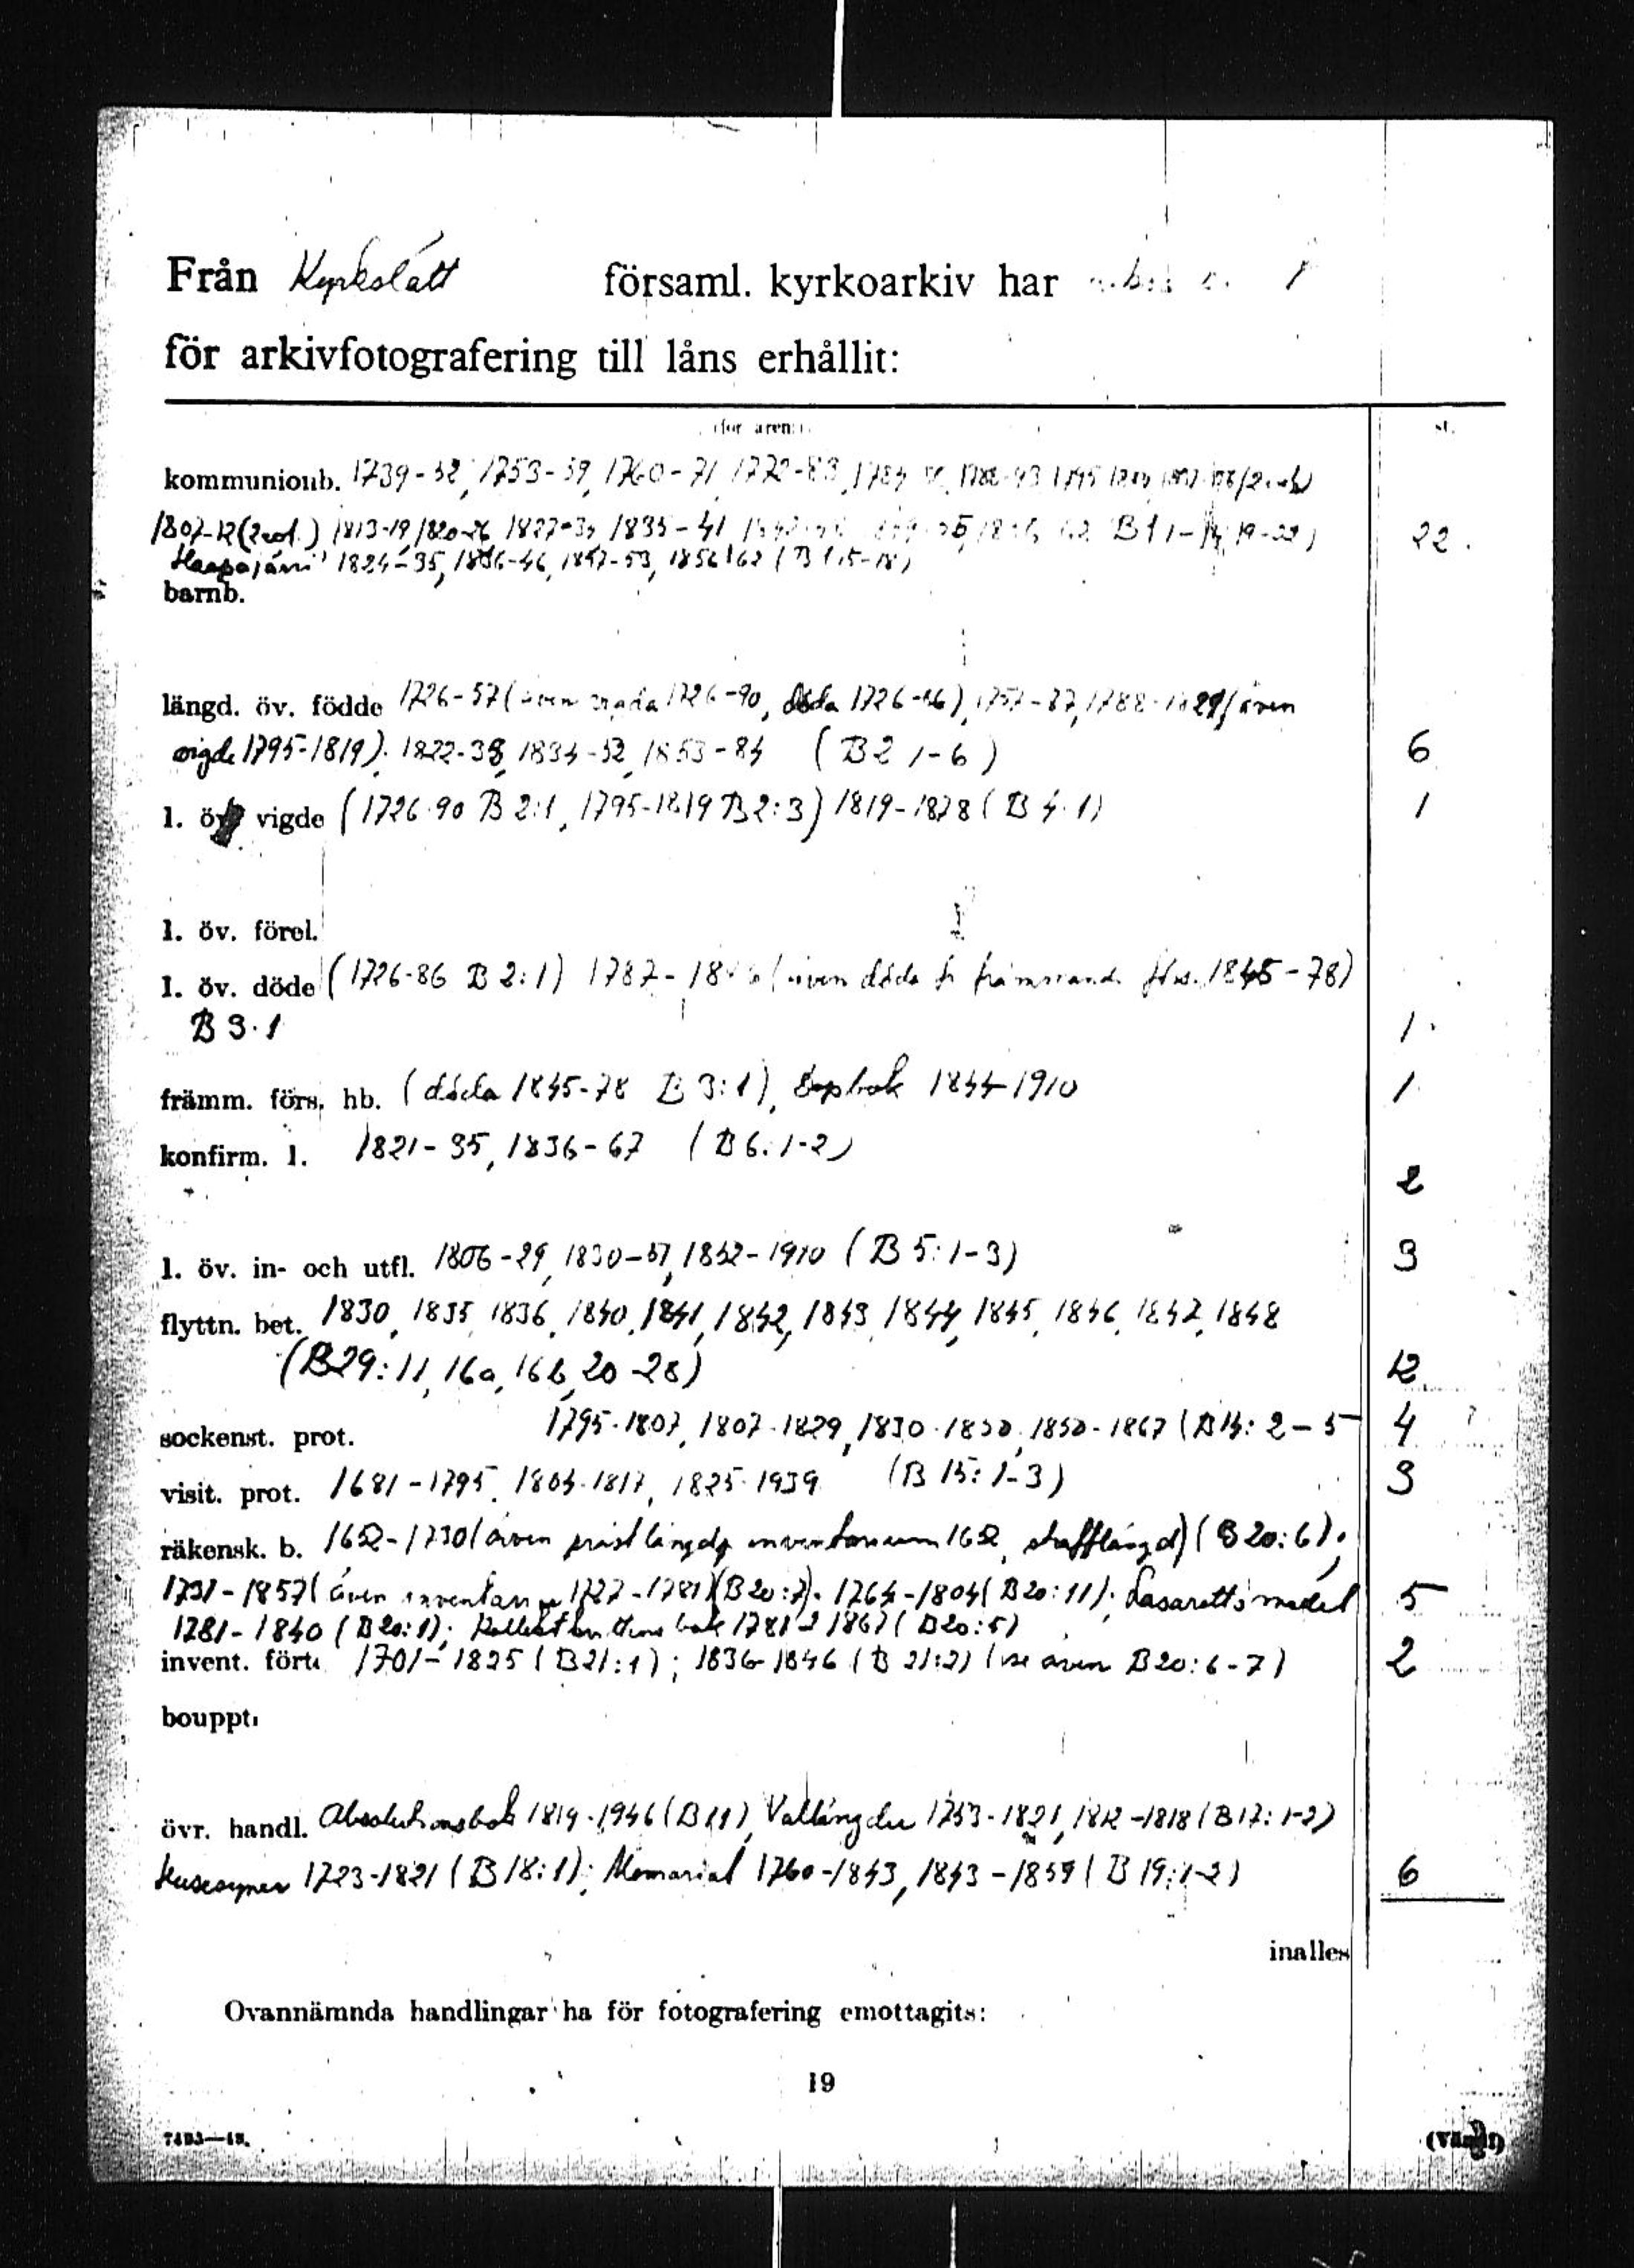 Från Kyrkslätt församl. kyrkoarkiv har
för arkivfotografering till låns erhållit:
(för åren:) st.
kommunionb. 1739-52, 1753-59, 1760-71, 1772-83, 1788-93 1795
1807-12 (2 vol.) 1813-19, 1820-26, 1827-34, 1835-41 B 1 1-14, 19-22) 22.
Haapajärvi 1824-35, 1836-46, 1847-53, 1856-62 (B 1:15-18)
barnb.
längd. öv. födde 1726-57 (även vigda 1726-90, döda 1726-86), 1757-87, 1788-1821 (även
vigde 1795-1819), 1822-33, 1834-52, 1853-84 (B 2 1-6) 6
l. öv. vigde (1726-90 B 2:1, 1795-1819 B 2:3) 1819-1878 (B 4:1) 1
l. öv. förel.
l. öv. döde (1726-86 B 2:1) 1787- (även döda fr främmande förs. 1845-78)
B 3:1 1.
främm. förs. hb. (döda 1845-78 B 3:1), Dopbok 1844-1910 1
konfirm. l. 1821-35, 1836-67 (B 6:1-2)
2
l. öv. in- och utfl. 1806-29, 1830-51, 1852-1910 (B 5:1-3) 3
flyttn. bet. 1830, 1835, 1836, 1840, 1841, 1842, 1843, 1844, 1845, 1846, 1847, 1848
(B29:11, 16a, 16b, 20-28) 12
sockenst. prot. 1795-1807, 1807-1829, 1830-1850, 1850-1867 (B 14: 2-5 4
visit. prot. 1681-1795, 1804-1817, 1825-1939 (B 15: 1-3) 3
räkensk. b. 1652-1730 (även inventarium 1652, strafflängd) (B 20:6);
1731-1857 (även inventarium 1727-1781) (B 20:7); 1764-1804 (B 20:11); Lasarettsmedel 5
1781-1840 (B 20:1); 1781-1867 (B 20:5)
invent. fört. 1701-1825 (B 21:1); 1836-1846 (B 21:2) (se även B 20:6-7) 2
bouppt.
övr. handl. Absolutionsbok 1819-1946 (B 11), Vallängder 1753-1821, 1812-1818 (B 17:1-2)
Husesyner 1723-1821 (B 18:1); Memorial 1760-1843, 1843-1859 (B 19:1-2) 6
inalles
Ovannämnda handlingar ha för fotografering emottagits:
19
7493—48. (Vänd!)